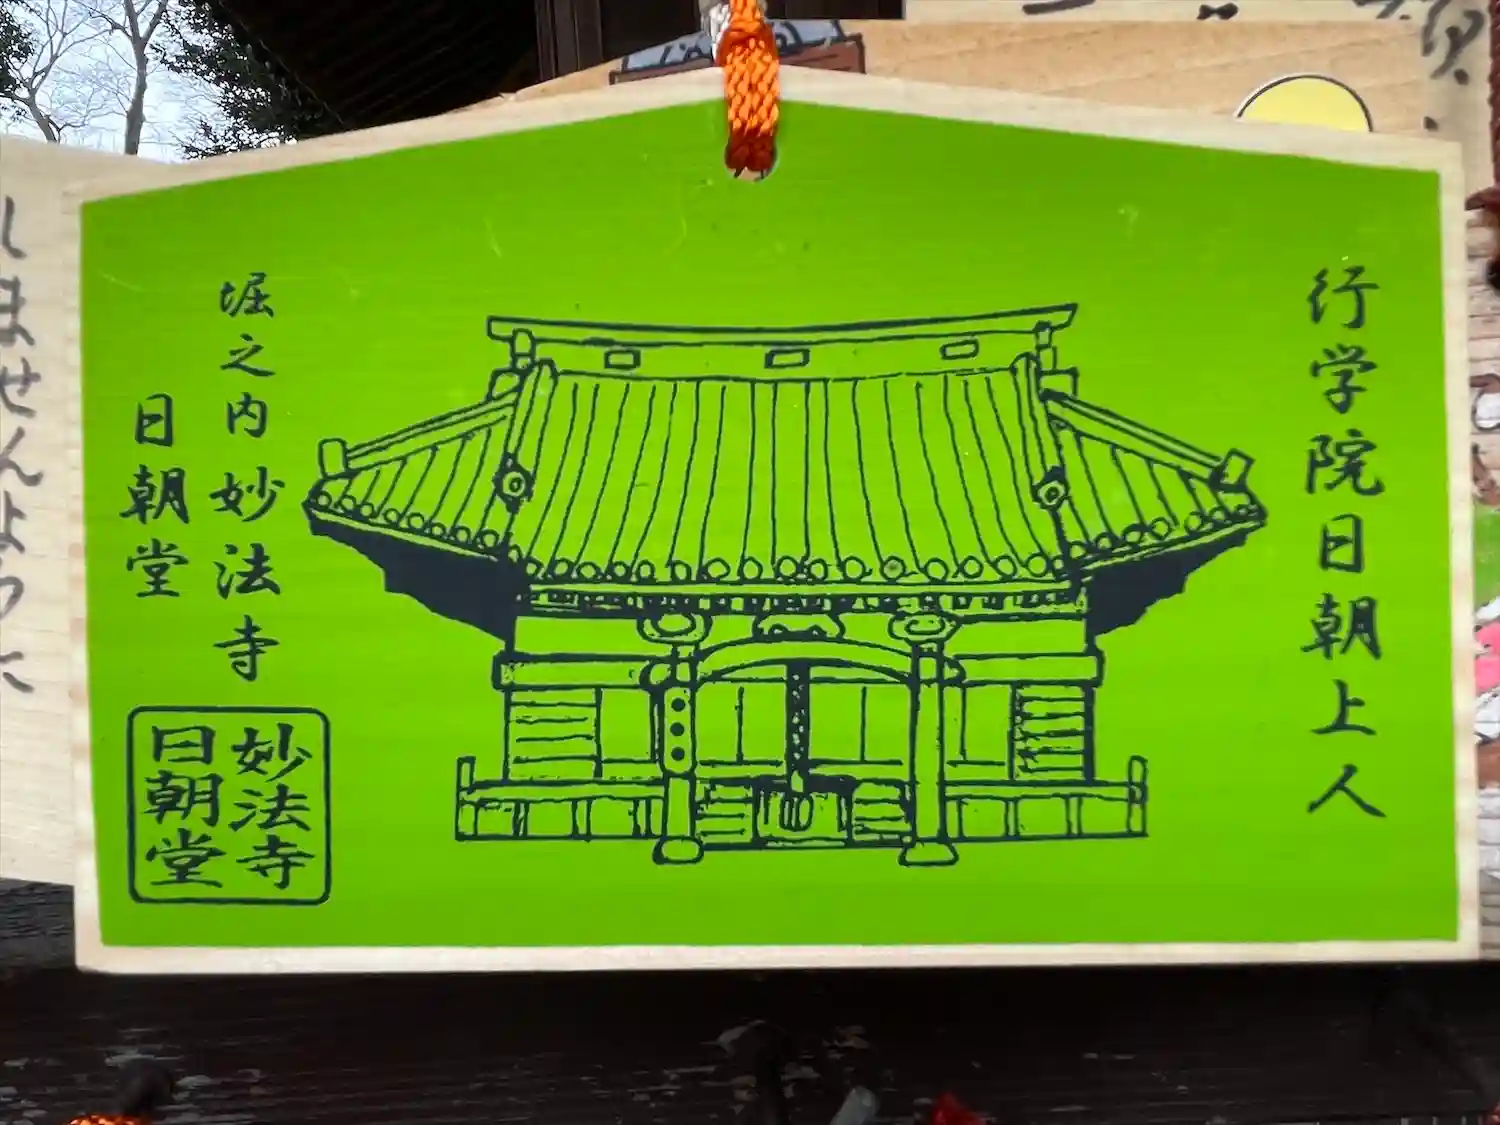 行学院日朝上人
堀之内 妙法寺
日朝堂
妙法寺
日朝堂
しませんように